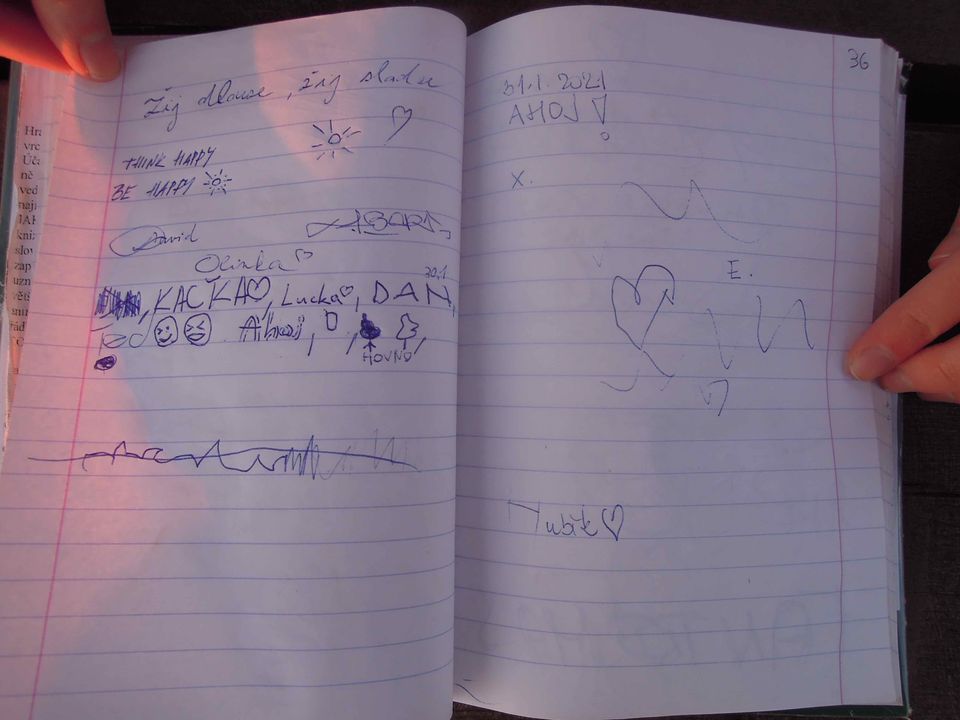 Žij dlouze, žij sladce
THINK HAPPY
BE HAPPY
David
Olinka
30.1
KAČKA, Lucka, DAN,
HOVNO
36
31.1. 2021
AHOJ!
X.
E.
Kubík